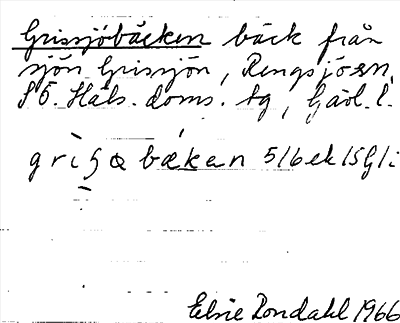 Grissjöbäcken bäck från
sjön Grissjön, Rengsjö sn,
S Ö. Häls. doms. tg, Gävl. l.
grisbækan 516ek
Elsie Rondahl 1966